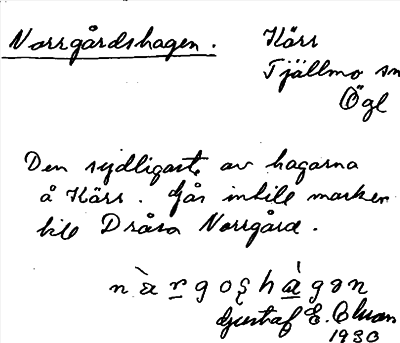 Norrgårdshagen. Kärr
Tjällmo sn
Ögl
Den sydligaste av hagarna
å Kärr. Går intill marken
till Dråsa Norrgård.
Gustaf E.
1930